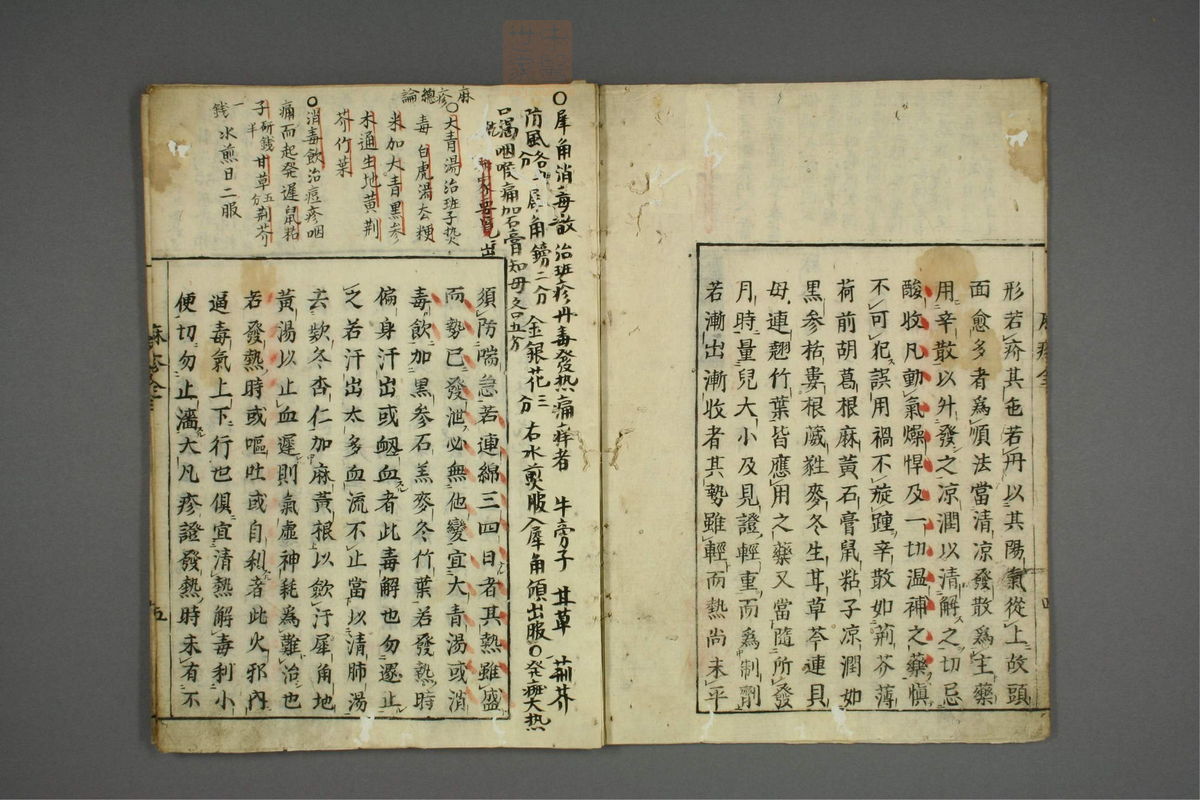 形若疥其色若丹以其陽氣從上故頭
面愈多者爲順法當清凉發散爲主藥
用辛散以升發之凉潤以清解之切忌
酸收凡動氣燥悍及一切温補之藥愼
不可犯誤用禍不旋踵辛散如荊芥薄
荷前胡葛根麻黃石膏鼠粘子凉潤如
黒参栝婁根葳甤麥冬生甘草芩連貝
母連翹竹葉皆應用之藥又當隨所發
月時量兒大小及見證輕重而爲制劑
若漸出漸收者其勢雖輕而熱尚未平
○犀角消毒散 治班疹丹毒發热痛痒者 牛旁子 甘草 荊芥
防風各 犀角鎊二分 金銀花三分 右水煎服入犀角傾出服○発班大热
口渴咽喉痛加石膏知母各口五分
須防喘急若連綿三四日者其熱雖盛
而勢已發泄必無他變宜大青湯或消
毒飲加黒参石羔麥冬竹葉若發熱時
偏身汗出或衂血者此毒解也勿遽止
之若汗出太多血流不止當以清肺湯
去欵冬杏仁加麻黃根以斂汗犀角地
黃湯以止血遲則氣虛神耗爲難治也
若發熱時或嘔吐或自利者此火邪內
逼毒氣上下行也俱宜清熱解毒利小
便切勿止濇大凡疹證發熱時未有不
麻疹總論
○大青湯治班子热
毒 白虎湯去粳
米加大青黒参
木通生地黃荆
芥竹葉
○消毒飲治痘疹咽
痛而起発遅鼠粘
子研錢半甘草五分荆芥
一錢水煎日二服
麻疹全
五